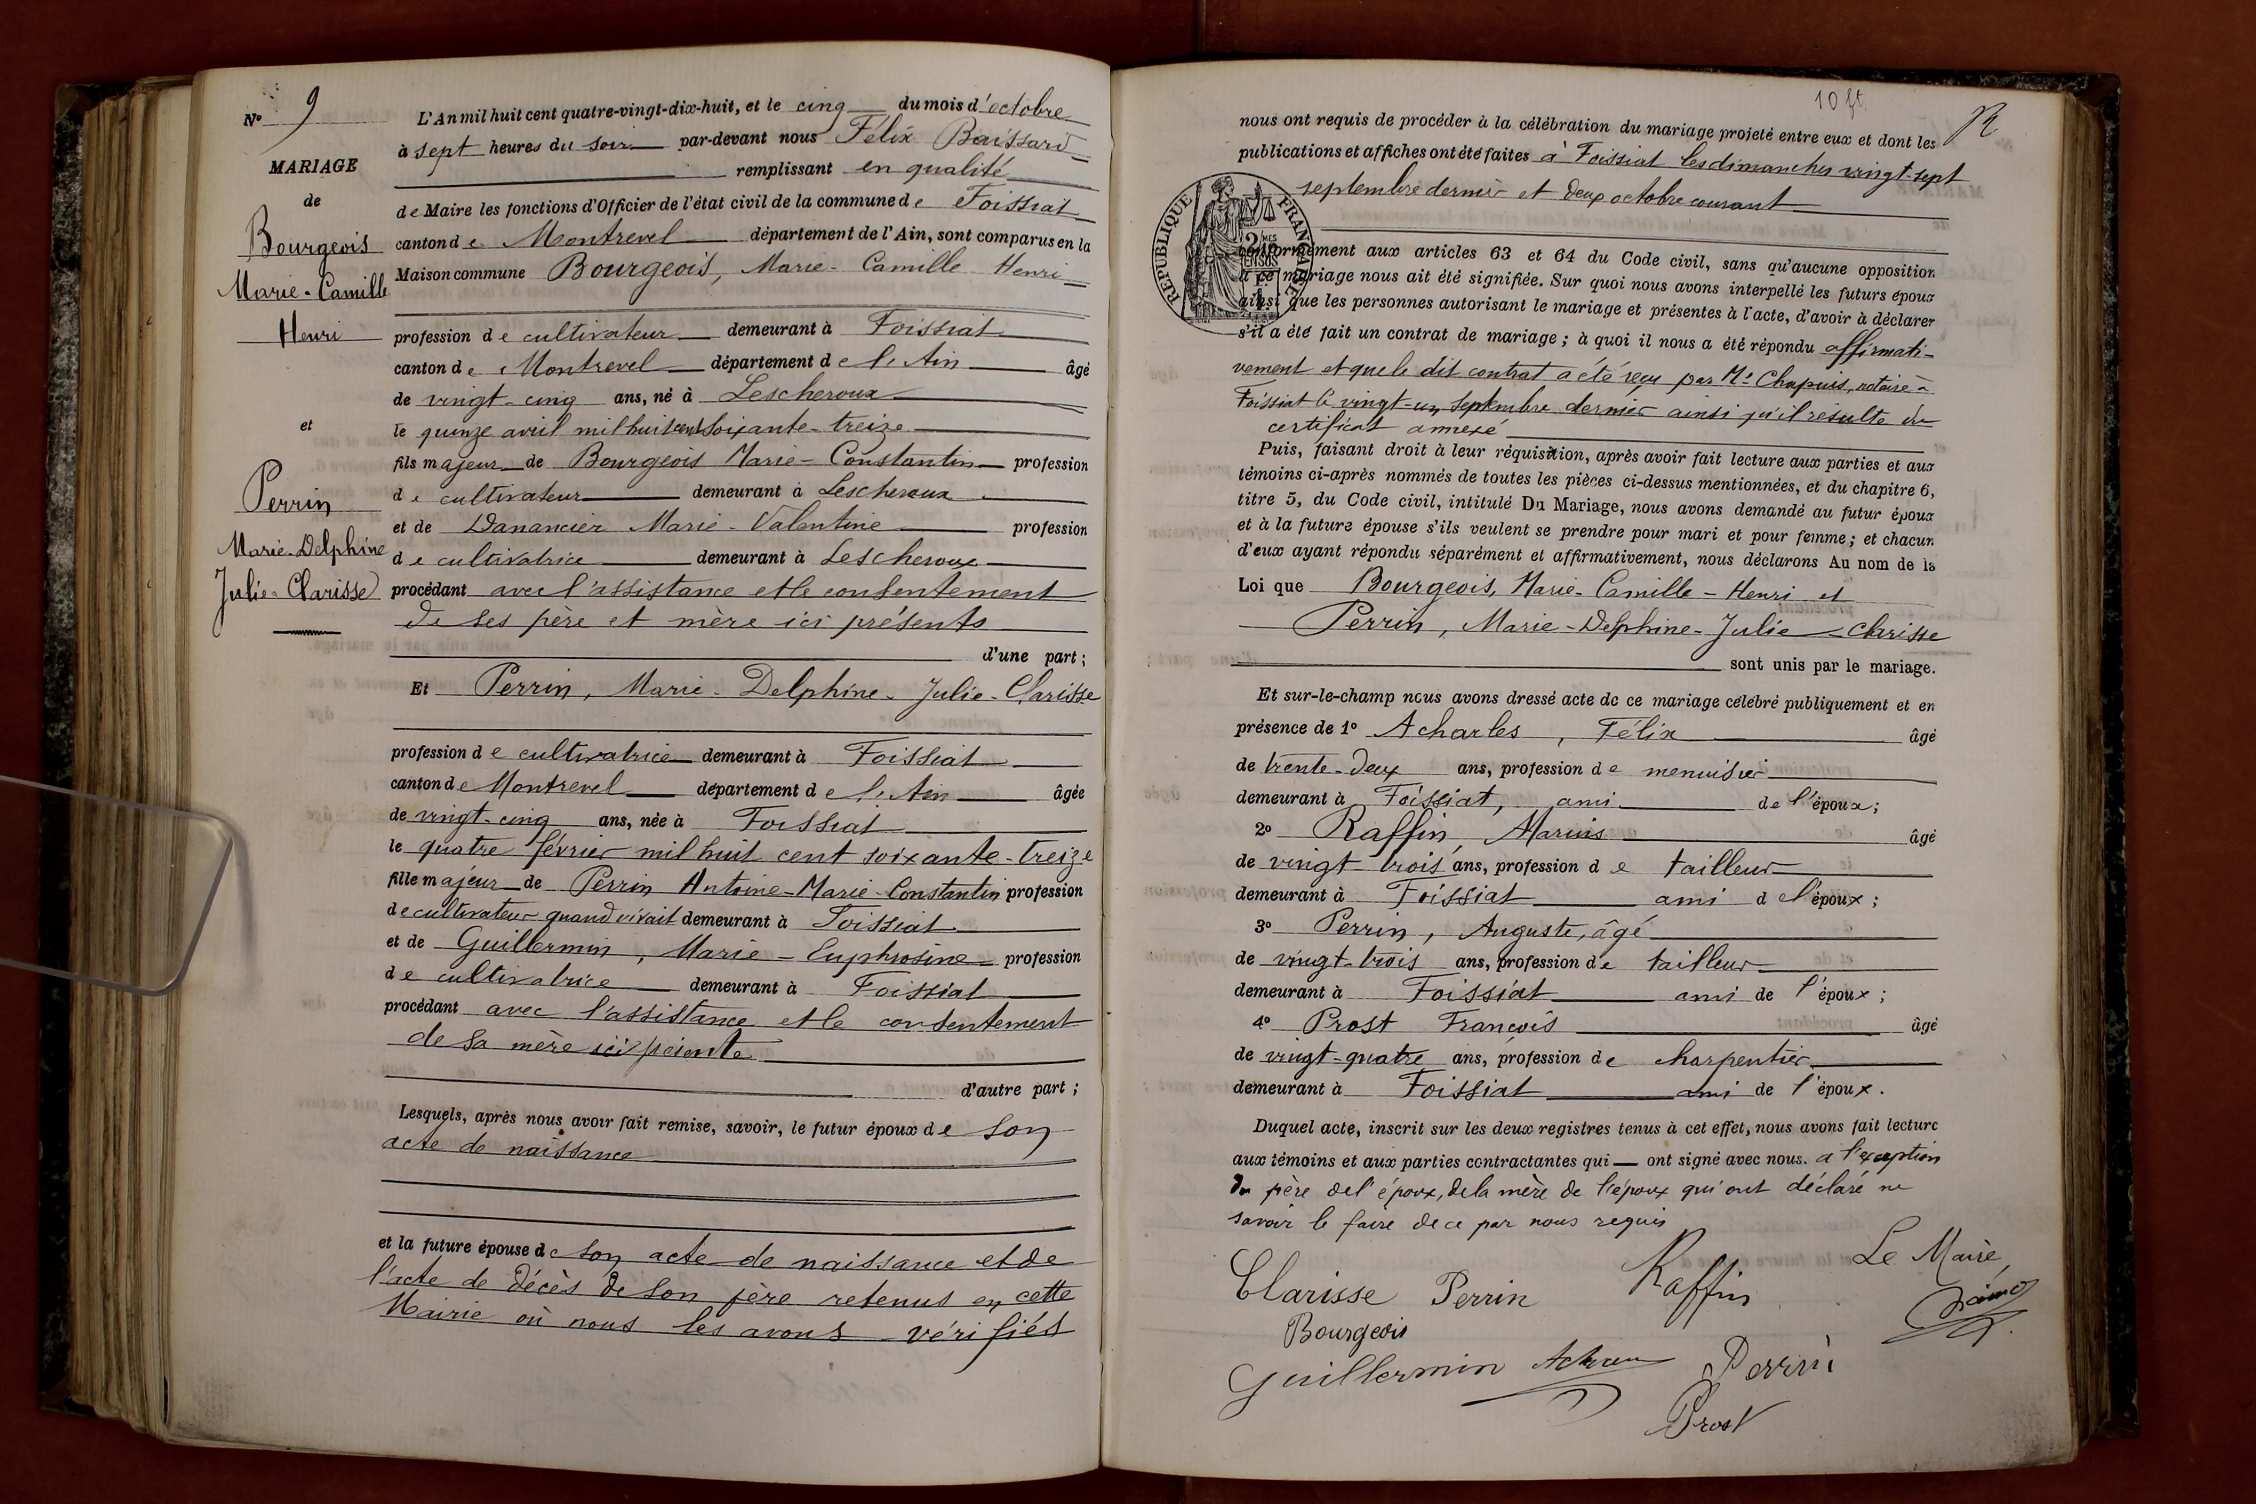 N° 9
MARIAGE
de
Bourgeois
Marie-Camille
Henri
et
Perrin
Marie-Delphine
Julie-Clarisse
L'An mil huit cent quatre-vingt-dix-huit, et le cinq du mois d'octobre
à sept heures du soir par-devant nous Félix
remplissant en qualité
de Maire les fonctions d'Officier de l'état civil de la commune de Foissiat
canton de Montrevel département de l'Ain, sont comparus en la
Maison commune Bourgeois, Marie-Camille Henri
profession de cultivateur demeurant à Foissiat
canton de Montrevel département de l'Ain âgé
de vingt-cinq ans, né à Lescheroux
le quinze avril mil huit cent soixante-treize
fils majeur de Bourgeois Marie-Constantin profession
de cultivateur demeurant à Lescheroux
et de Danancier Marie-Valentine profession
de cultivatrice demeurant à Lescheroux
procédant avec l'assistance et le consentement
de ses père et mère ici présents
d'une part;
Et Perrin, Marie-Delphine-Julie-Clarisse
profession de cultivatrice demeurant à Foissiat
canton de Montrevel département de l'Ain âgée
de vingt-cinq ans, née à Foissiat
le quatre février mil huit cent soixante-treize
fille majeur de Perrin Antoine-Marie-Constantin profession
de cultivateur quand vivait demeurant à Foissiat
et de Guillermin, Marie-Euphrosine profession
de cultivatrice demeurant à Foissiat
procédant avec l'assistance et le consentement
de sa mère ici présente
d'autre part;
Lesquels, après nous avoir fait remise, savoir, le futur époux de son
acte de naissance
et la future épouse de son acte de naissance et de
l'acte de décès de son père retenus en cette
Mairie où nous les avons vérifiés
nous ont requis de procéder à la célébration du mariage projeté entre eux et dont les
publications et affiches ont été faites à Foissiat les dimanches vingt-sept
septembre dernier et deux octobre courant
REPUBLIQUE FRANÇAISE
conformément aux articles 63 et 64 du Code civil, sans qu'aucune opposition
à ce mariage nous ait été signifiée. Sur quoi nous avons interpellé les futurs époux
ainsi que les personnes autorisant le mariage et présentes à l'acte, d'avoir à déclarer
s'il a été fait un contrat de mariage; à quoi il nous a été répondu affirmati-
vement et que le dit contrat a été reçu par Me Chapuis, notaire à
Foissiat le vingt-un septembre dernier ainsi qu'il résulte du
certificat annexé
Puis, faisant droit à leur réquisition, après avoir fait lecture aux parties et aux
témoins ci-après nommés de toutes les pièces ci-dessus mentionnées, et du chapitre 6,
titre 5, du Code civil, intitulé Du Mariage, nous avons demandé au futur époux
et à la future épouse s'ils veulent se prendre pour mari et pour femme; et chacun
d'eux ayant répondu séparément et affirmativement, nous déclarons Au nom de la
Loi que Bourgeois, Marie-Camille-Henri et
Perrin, Marie-Delphine-Julie-Clarisse
sont unis par le mariage.
Et sur-le-champ nous avons dressé acte de ce mariage célébré publiquement et en
présence de 1° Acharles, Félix âgé
de trente-deux ans, profession de menuisier
demeurant à Foissiat, ami de l'époux;
2° Raffin, Marius âgé
de vingt trois ans, profession de tailleur
demeurant à Foissiat ami de l'époux;
3° Perrin, Auguste, âgé
de vingt-trois ans, profession de tailleur
demeurant à Foissiat ami de l'époux;
4° Prost François âgé
de vingt-quatre ans, profession de charpentier
demeurant à Foissiat ami de l'époux.
Duquel acte, inscrit sur les deux registres tenus à cet effet, nous avons fait lecture
aux témoins et aux parties contractantes qui ont signé avec nous. à l'exception
du père de l'époux, de la mère de l'époux qui ont déclaré ne
savoir le faire de ce par nous requis
Clarisse Perrin Raffin Le Maire,
Bourgeois
Guillermin Perrin
Prost